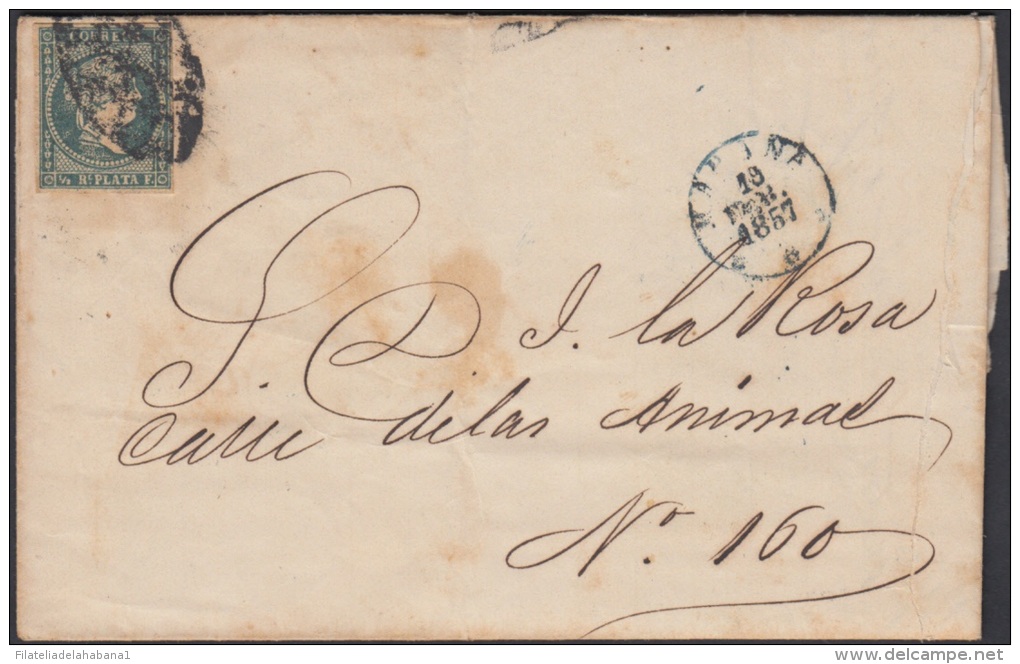 CORREOS
½ Rl. PLATA F.
HABANA
19
FEB.
1857
S. D. J. la Rosa
Calle de las Animas
No. 160
Filateliadelahabana1
delcampe.net